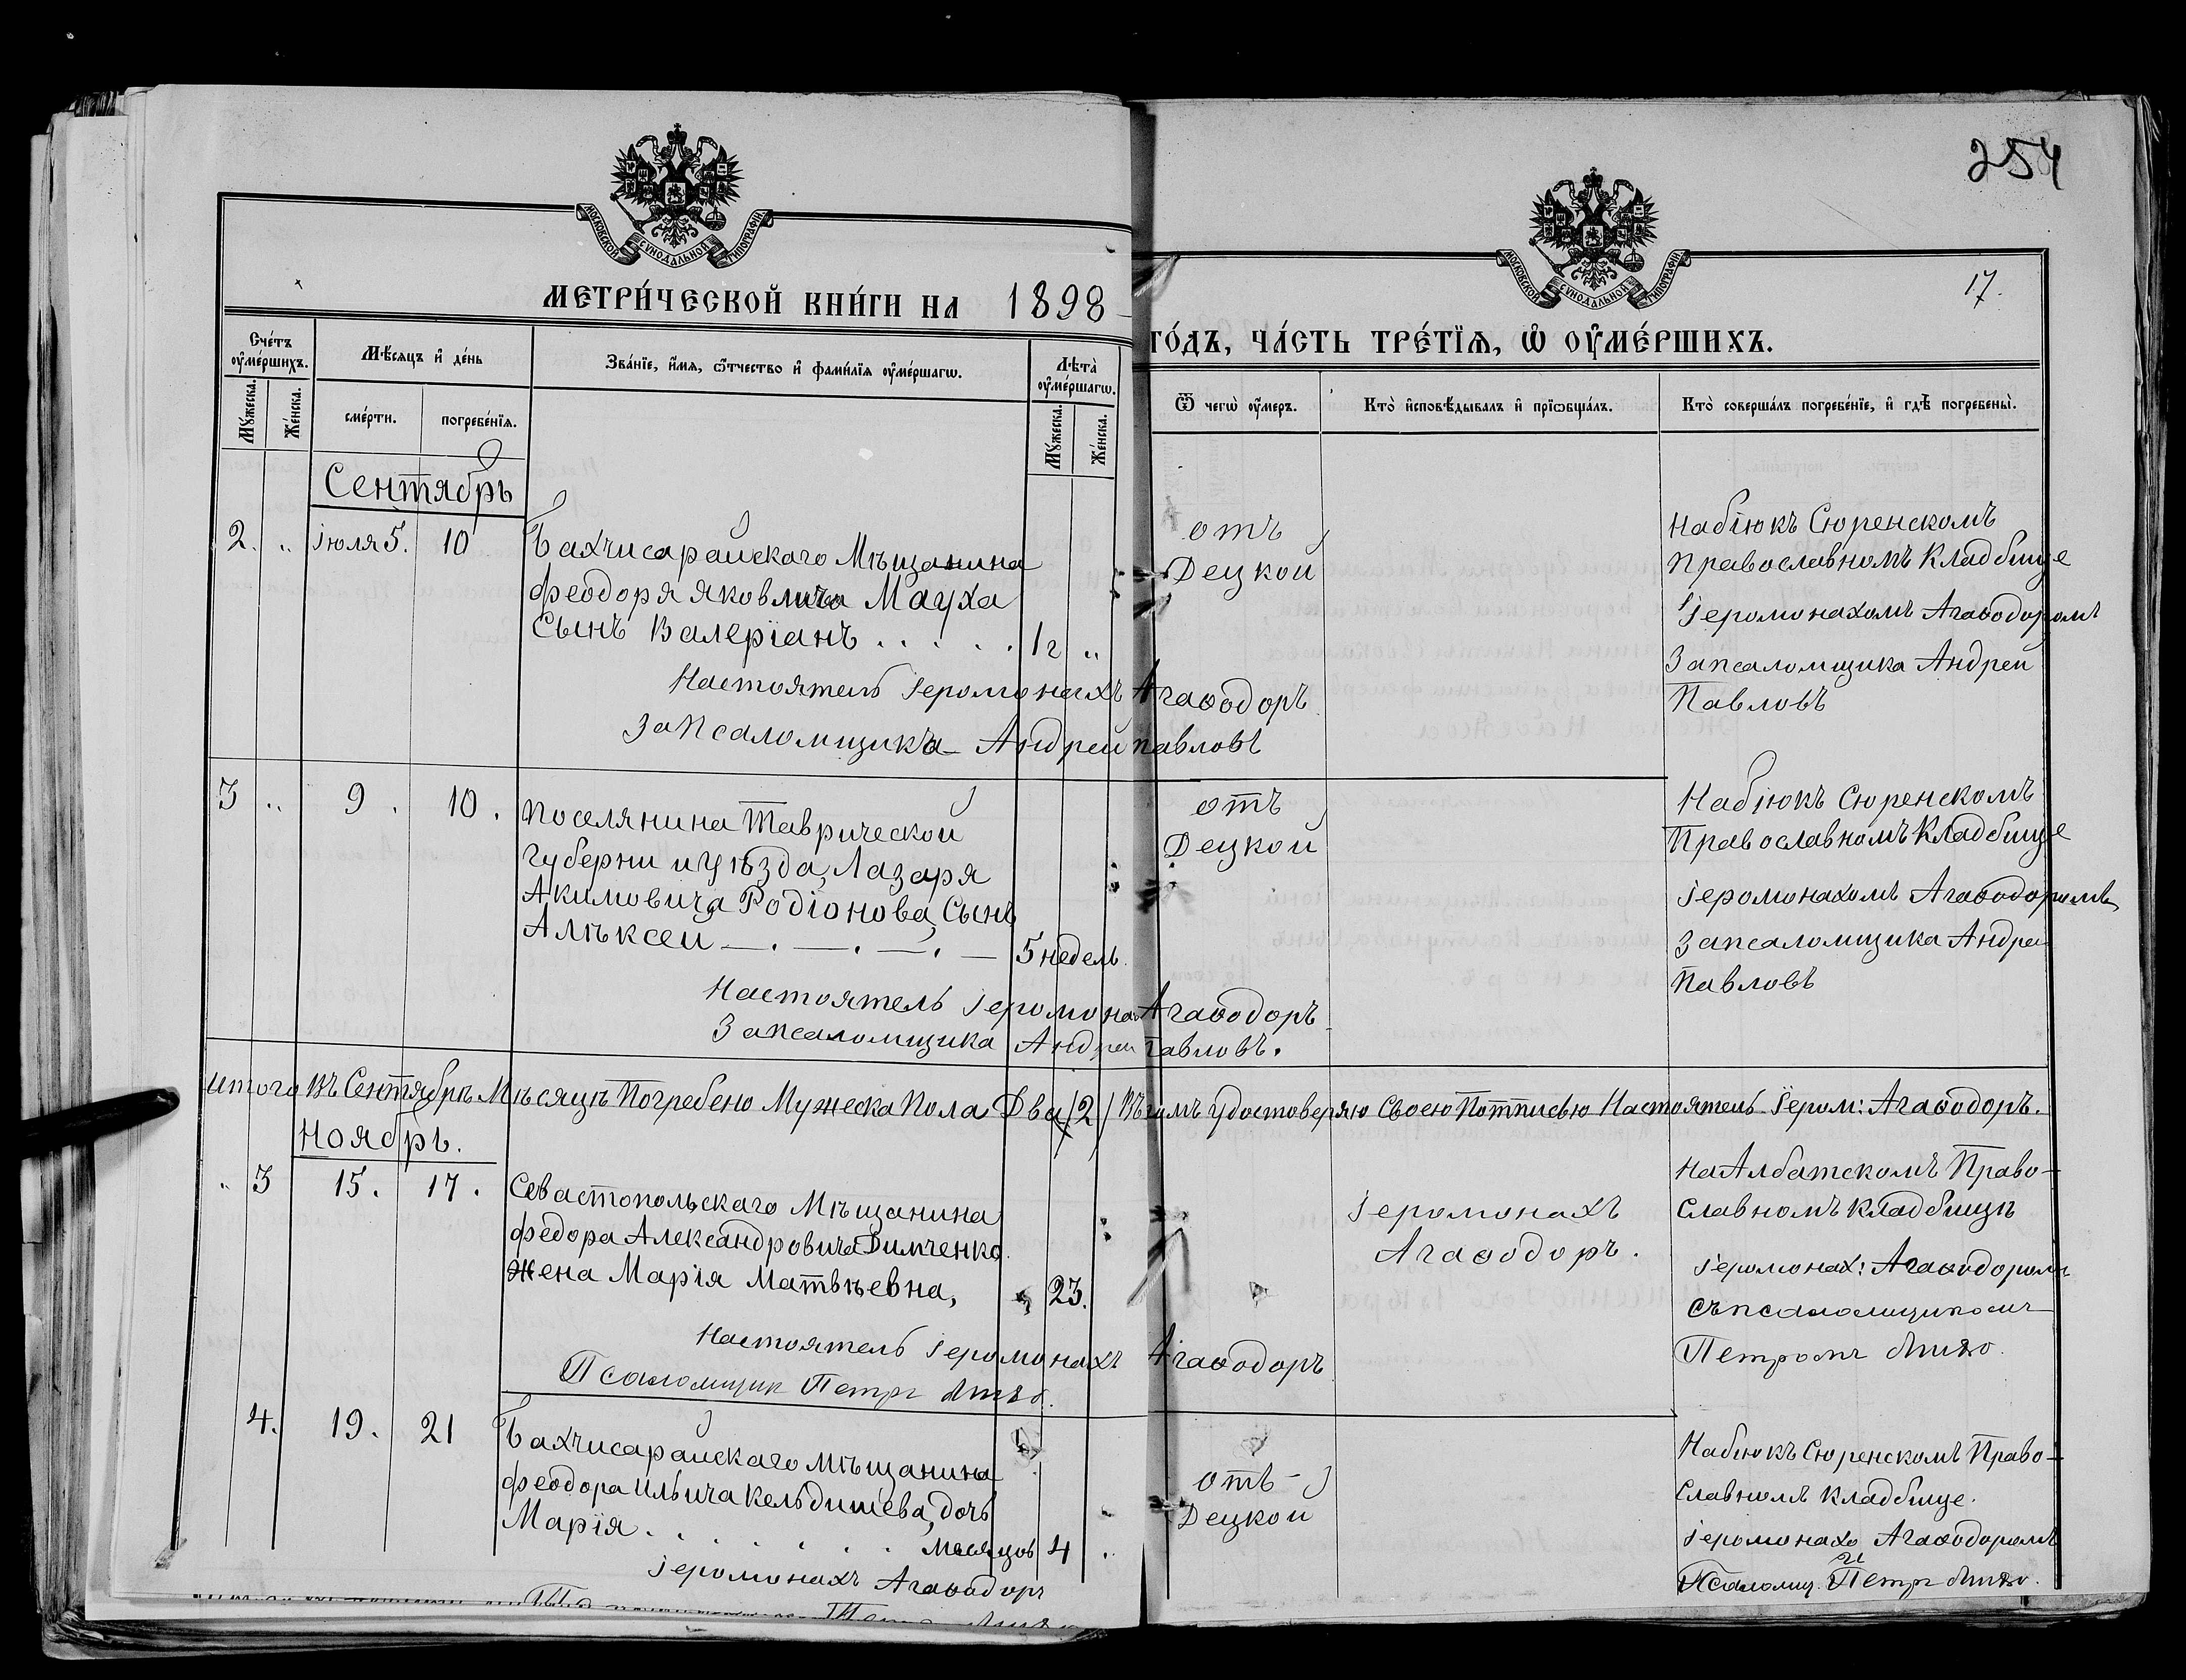 254
17.
МОСКОВСКОЙ СУНОДАЛЬНОЙ ТИПОГРАФІИ
МОСКОВСКОЙ СУНОДАЛЬНОЙ ТИПОГРАФІИ
МЕТРИ́ЧЕСКОЙ КНИ́ГИ НА 1898
ГО́ДЪ, ЧА́СТЬ ТРЕ́ТЇѦ, Ѡ҆ ОУ҆МЕ́РШИХЪ.
Сче́тъ оу҆ме́ршихъ.
Мꙋ́жеска.
Же́нска.
Мѣ́сяцъ и҆ де́нь
сме́рти.
погребе́нїѧ.
Зва́нїе, и҆́мѧ, ѻ҆́тчество и҆ фами́лїѧ оу҆ме́ршагѡ.
Лѣ́та̀ оу҆ме́ршагѡ.
Мꙋ́жеска.
Же́нска.
Ѿ чегѡ̀ оу҆́меръ.
Кто̀ и҆сповѣ́дывалъ и҆ прїѡбща́лъ.
Кто̀ соверша́лъ погребе́нїе, и҆ гдѣ̀ погребены̀.
Сентябрь
2. " іюля 5. 10
Бахчисарайскаго Мѣщанина
Феодоря Яковлича Мауха
Сынъ Валеріанъ . . . . . 1 г "
Настоятель Іеромонахъ Агаѳодоръ
За Псаломщика Андрей Павловъ
отъ
Децкой
Набіюкъ Сюренскомъ
Православномъ Кладбище
Іеромонахомъ Агаѳодоромъ
Запсаломщика Андрей
Павловъ
3 " 9. 10.
Поселянина Таврической
Губерни и Уѣзда, Лазаря
Акимовича Родіонова, Сынъ
Алѣксей 5 недель.
Настоятель Іеромонахъ Агаѳодоръ
Запсаломщика Андрей Павловъ.
отъ
Децкой
Набіюкъ Сюренскомъ
Православномъ Кладбище
Іеромонахомъ Агаѳодоромъ
Запсаломщика Андрей
Павловъ
Итого въ Сентябрѣ Мѣсяцѣ Погребено Мужеска Пола Два /2/ Въ чемъ Удостоверяю Своею Потписью Настоятель Іером: Агаѳодоръ.
Ноябрь.
" 3 15. 17.
Севастопольскаго Мѣщанина
Федора Александровича Димченко
Жена Марія Матвѣевна, " 23.
Настоятель Іеромонахъ Агаѳодоръ
Псаломщик Петръ
Іеромонахъ
Агаѳодоръ.
На Албатскомъ Право-
славномъ Кладбищѣ
Іеромонах: Агаѳодоромъ
съ псаломщикомъ
Петромъ
4. 19. 21
Бахчисарайскаго мѣщанина
Феодора Ильича Кельдишева, дочь
Марія . . . . . . месяцов 4
Іеромонахъ Агаѳодоръ
отъ
Децкой
Набіюкъ Сюренскомъ Право-
славномъ Кладбище.
Іеромонахо Агаѳодоромъ
Псаломщ. Петръ